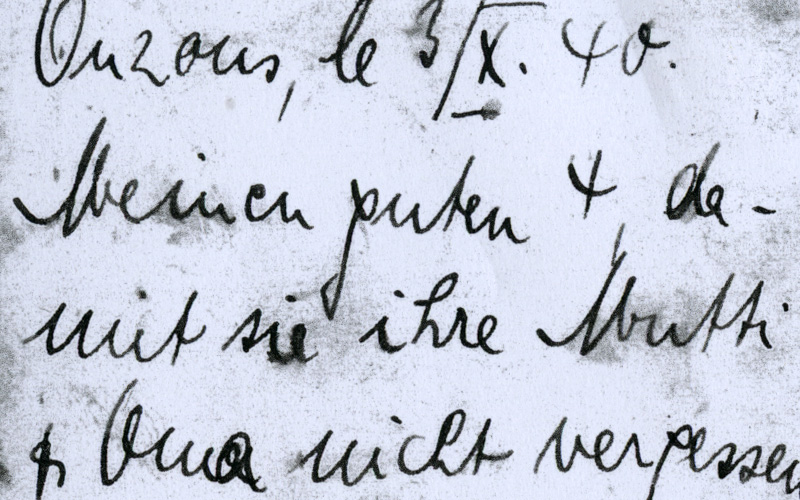 Onzons, le 3/X. 40.
Meinen guten 4, da-
mit sie ihre Mutti
& Oma nicht vergessen